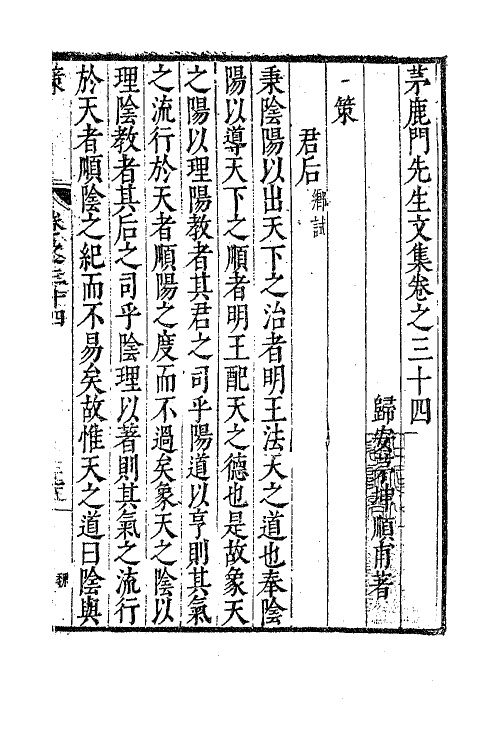 茅鹿門先生文集卷之三十四
歸安茅坤順甫著
策
君后鄉試
秉陰陽以出天下之治者明王法天之道也奉陰
陽以導天下之順者明王配天之德也是故象天
之陽以理陽教者其君之司乎陽道以亨則其氣
之流行於天者順陽之度而不過矣象天之陰以
理陰教者其后之司乎陰理以著則其氣之流行
於天者順陰之紀而不易矣故惟天之道曰陰與
策
卷之三十四